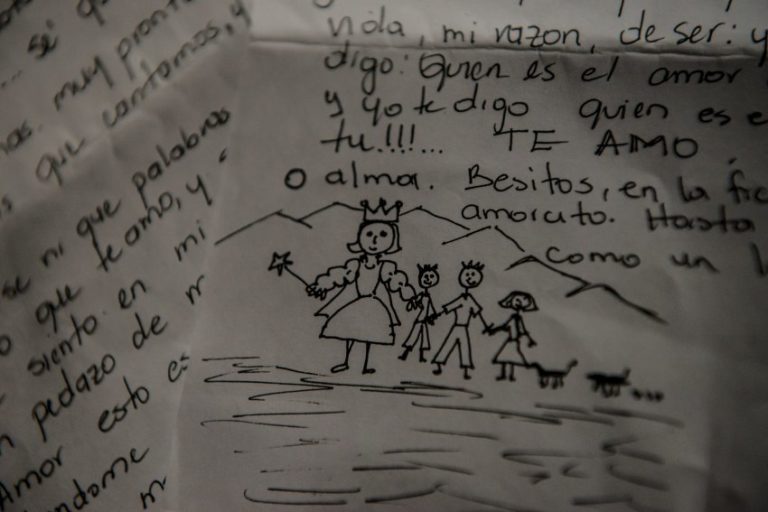 ... se q
as. muy pront
que cantamos, y
se ni que palabras
que te amo, y
siento en mi
pedazo de m
Amor esto es
ndome
m
vida, mi razon, de ser: y
digo: Quien es el amor
y yo te digo quien es e
tu!!!... TE AMO
o alma. Besitos, en la
amorcito. Hasta
como un